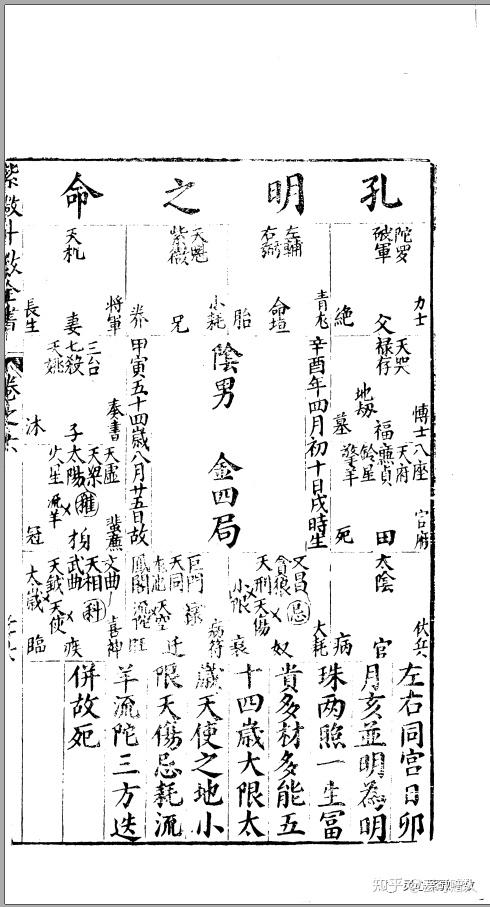 孔明之命
陀罗
破軍
力士
父
絶
左輔
右弼
青龙
命垣
胎
天魁
紫微
小耗
兄
养
天机
將軍
妻
長生
天哭
祿存
地刼
博士
福
墓
八座
天府
廉貞
鈴星
擎羊
官府
田
死
太陰
伏兵
官
病
辛酉年四月初十日戌時生
陰男
金四局
甲寅五十四歳八月廿五日故
三台
七殺
天姚
奏書
子
沐
天虛
天梁
太陽
火星
流羊
權
蜚廉
冠
文曲
天相
武曲
天鉞
天使
太歳
科
喜神
疾
臨
巨門
天同
天空
鳳閣
流陀
禄
病符
迁
旺
文昌
貪狼
天刑
天傷
小限
忌
大耗
奴
衰
左右同宮日卯
月亥並明為明
珠两照一生冨
貴多材多能五
十四歳大限太
歳天使之地小
限天傷忌耗流
羊流陀三方迭
併故死
紫微斗数全書
卷之六
知乎